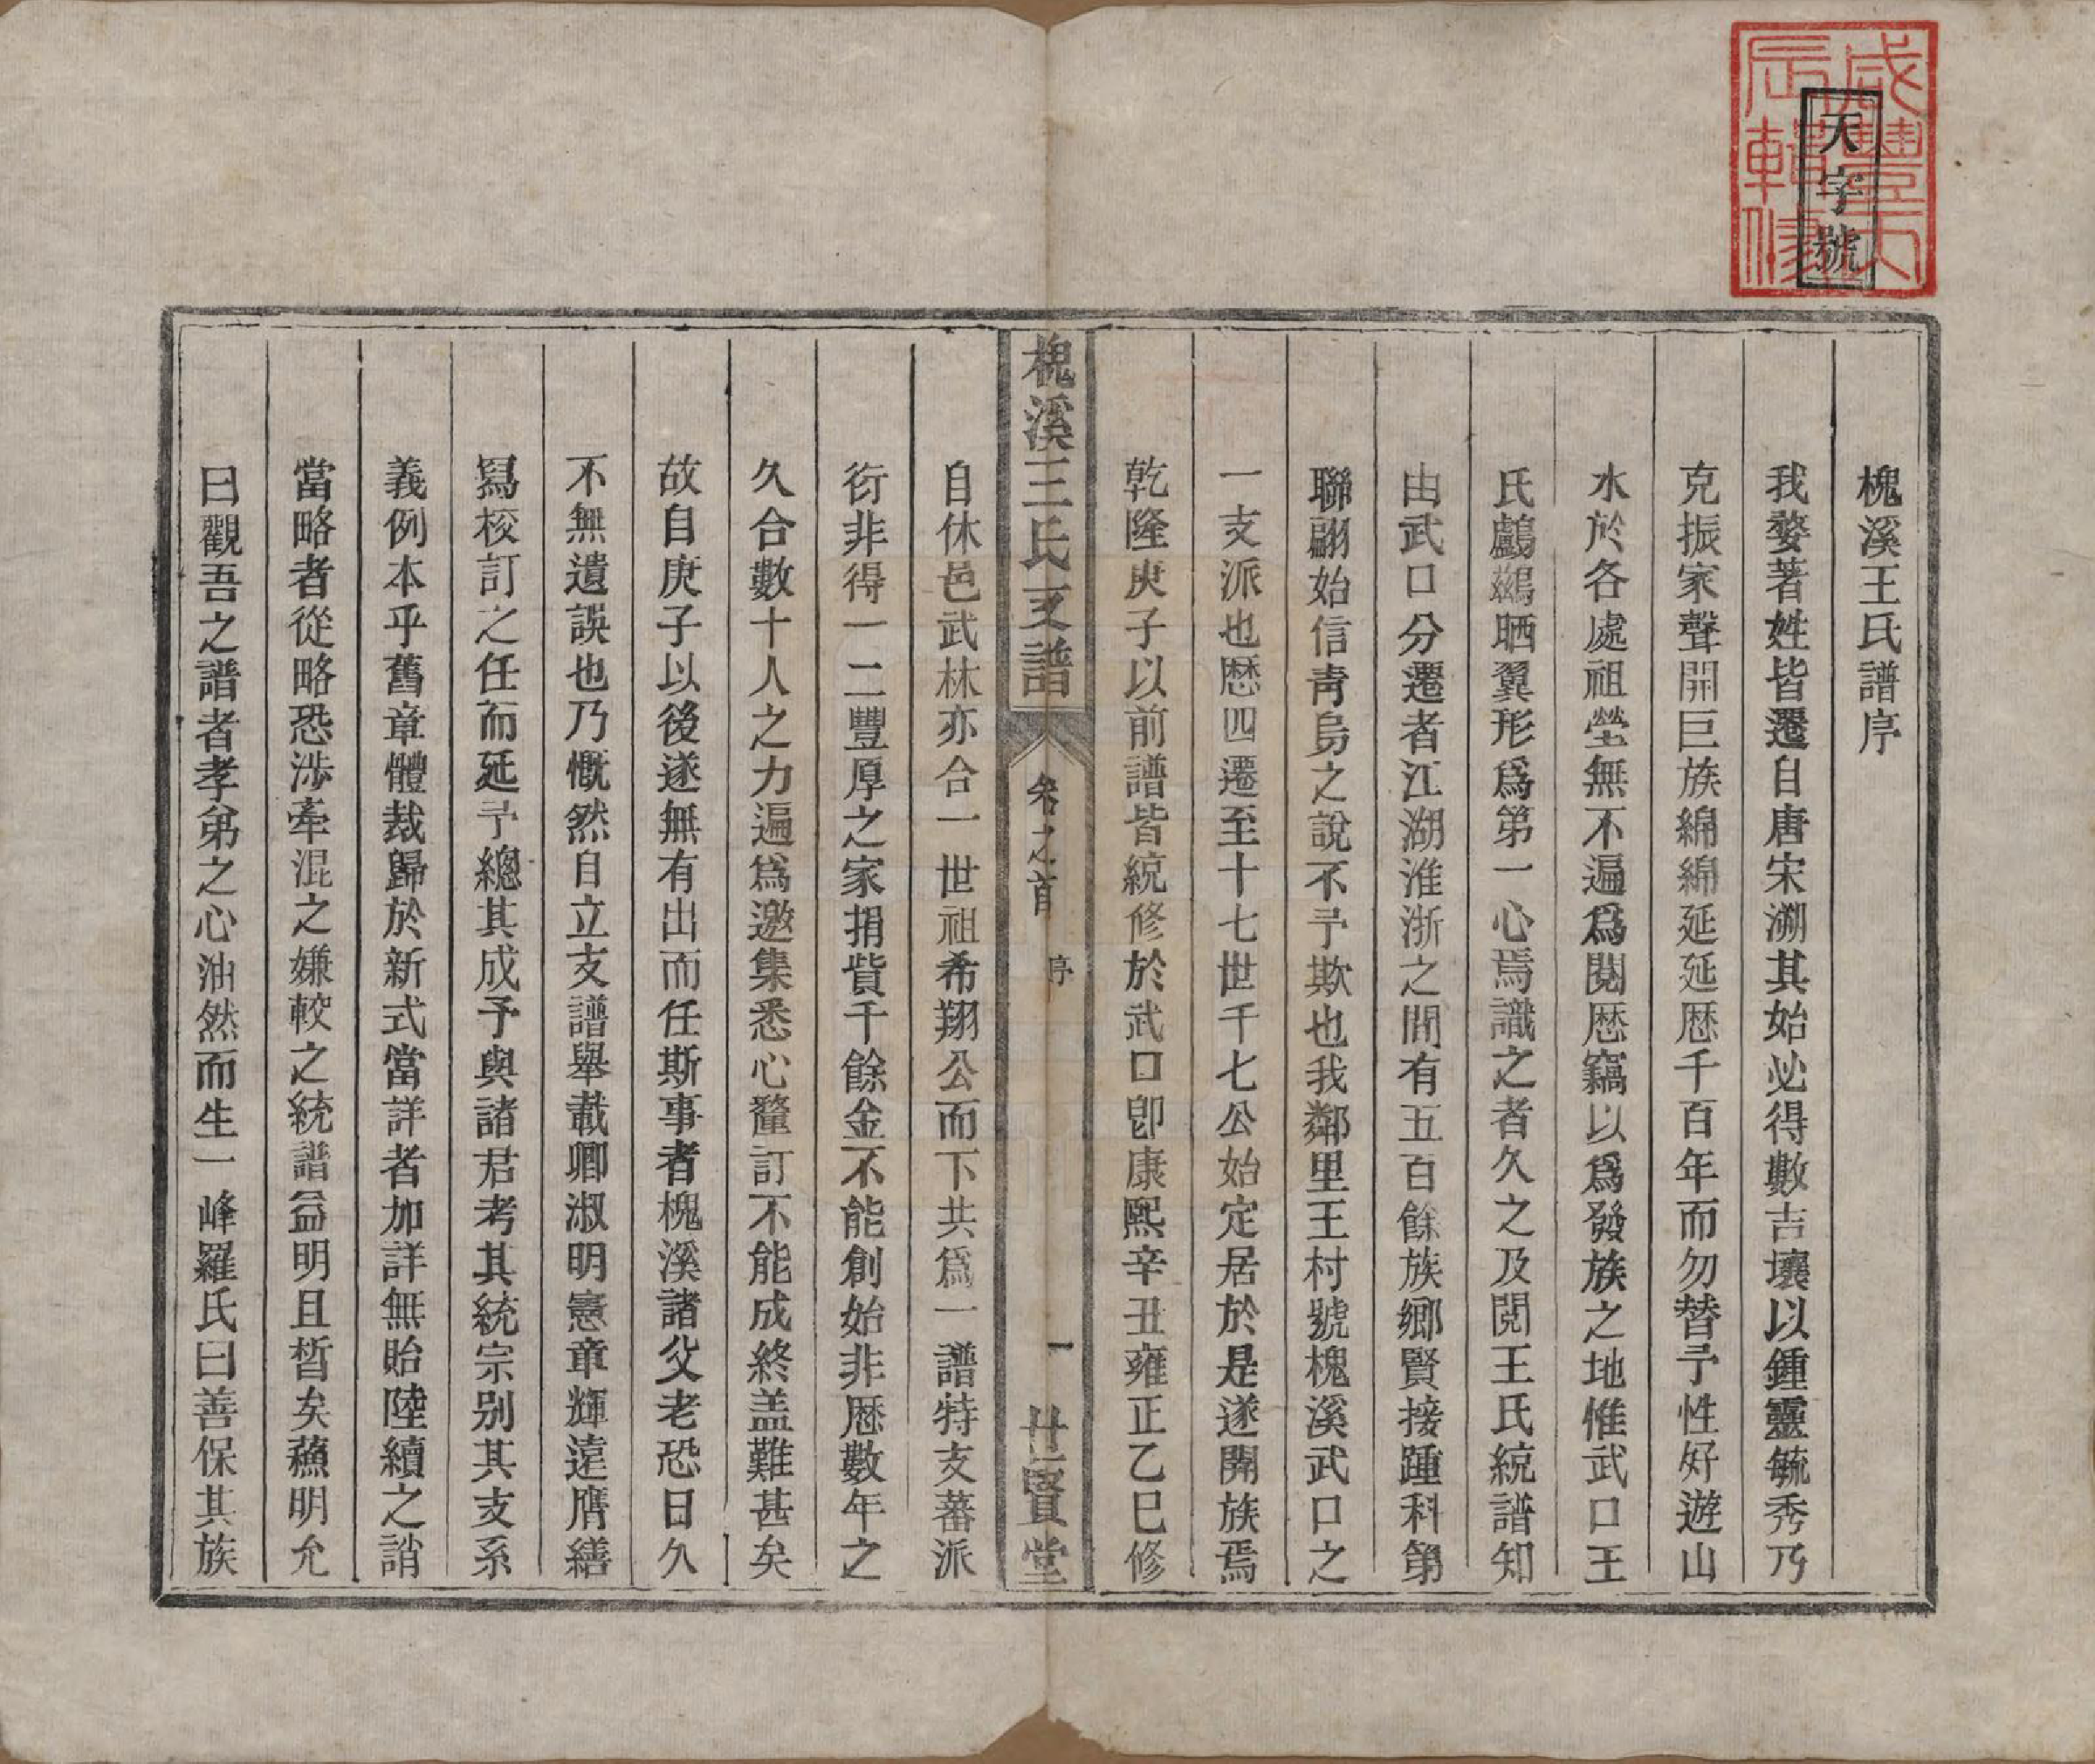 天字號
咸豐丙辰輯修
槐溪王氏譜序
我婺著姓皆遷自唐宋溯其始必得數吉壤以鍾靈毓秀乃
克振家聲開巨族綿綿延延歷千百年而勿替予性好遊山
水於各處祖塋無不遍爲閱歷竊以爲發族之地惟武口王
氏鸕鷀晒翼形爲第一心焉識之者久之及閱王氏統譜知
由武口分遷者江湖淮浙之間有五百餘族鄉賢接踵科第
聯翩始信靑烏之說不予欺也我鄰里王村號槐溪武口之
一支派也歷四遷至十七世千七公始定居於是遂開族焉
乾隆庚子以前譜皆統修於武口卽康熙辛丑雍正乙巳修
槐溪王氏支譜
卷之首
序
一
世賢堂
自休邑武林亦合一世祖希翔公而下共爲一譜特支蕃派
衍非得一二豐厚之家捐貲千餘金不能創始非歷數年之
久合數十人之力遍爲邀集悉心釐訂不能成終盖難甚矣
故自庚子以後遂無有出而任斯事者槐溪諸父老恐日久
不無遺誤也乃慨然自立支譜舉載卿淑明憲章輝遠膺繕
寫校訂之任而延予總其成予與諸君考其統宗別其支系
義例本乎舊章體裁歸於新式當詳者加詳無貽陸續之誚
當略者從略恐涉牽混之嫌較之統譜益明且晳矣蘓明允
曰觀吾之譜者孝弟之心油然而生一峰羅氏曰善保其族